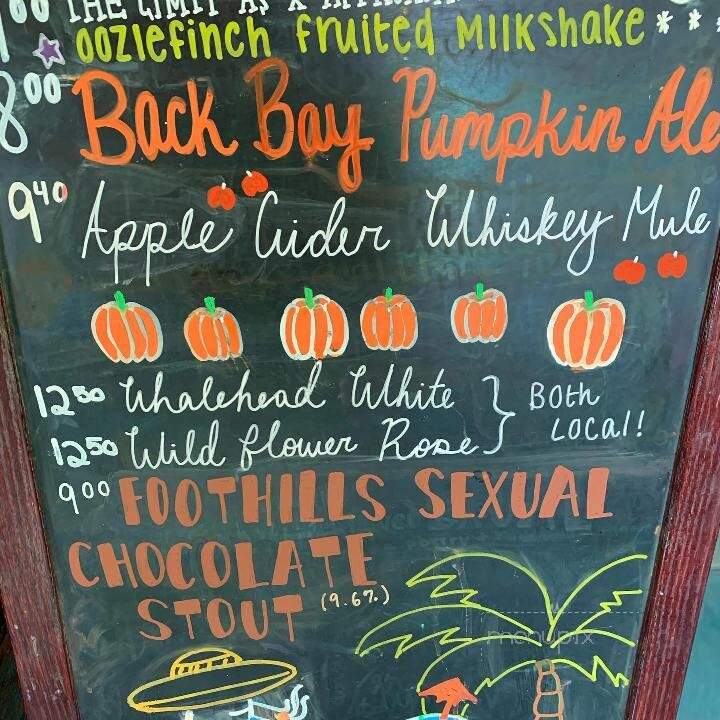 00 THE LIMIT AS X
oozlefinch fruited Milkshake * * *
8 00 Back Bay Pumpkin Ale
9 40 Apple Cider Whiskey Mule
12 50 Whalehead White } Both
12 50 Wild flower Rose } Local!
9 00 FOOTHILLS SEXUAL
CHOCOLATE
STOUT (9.6%)
menupix